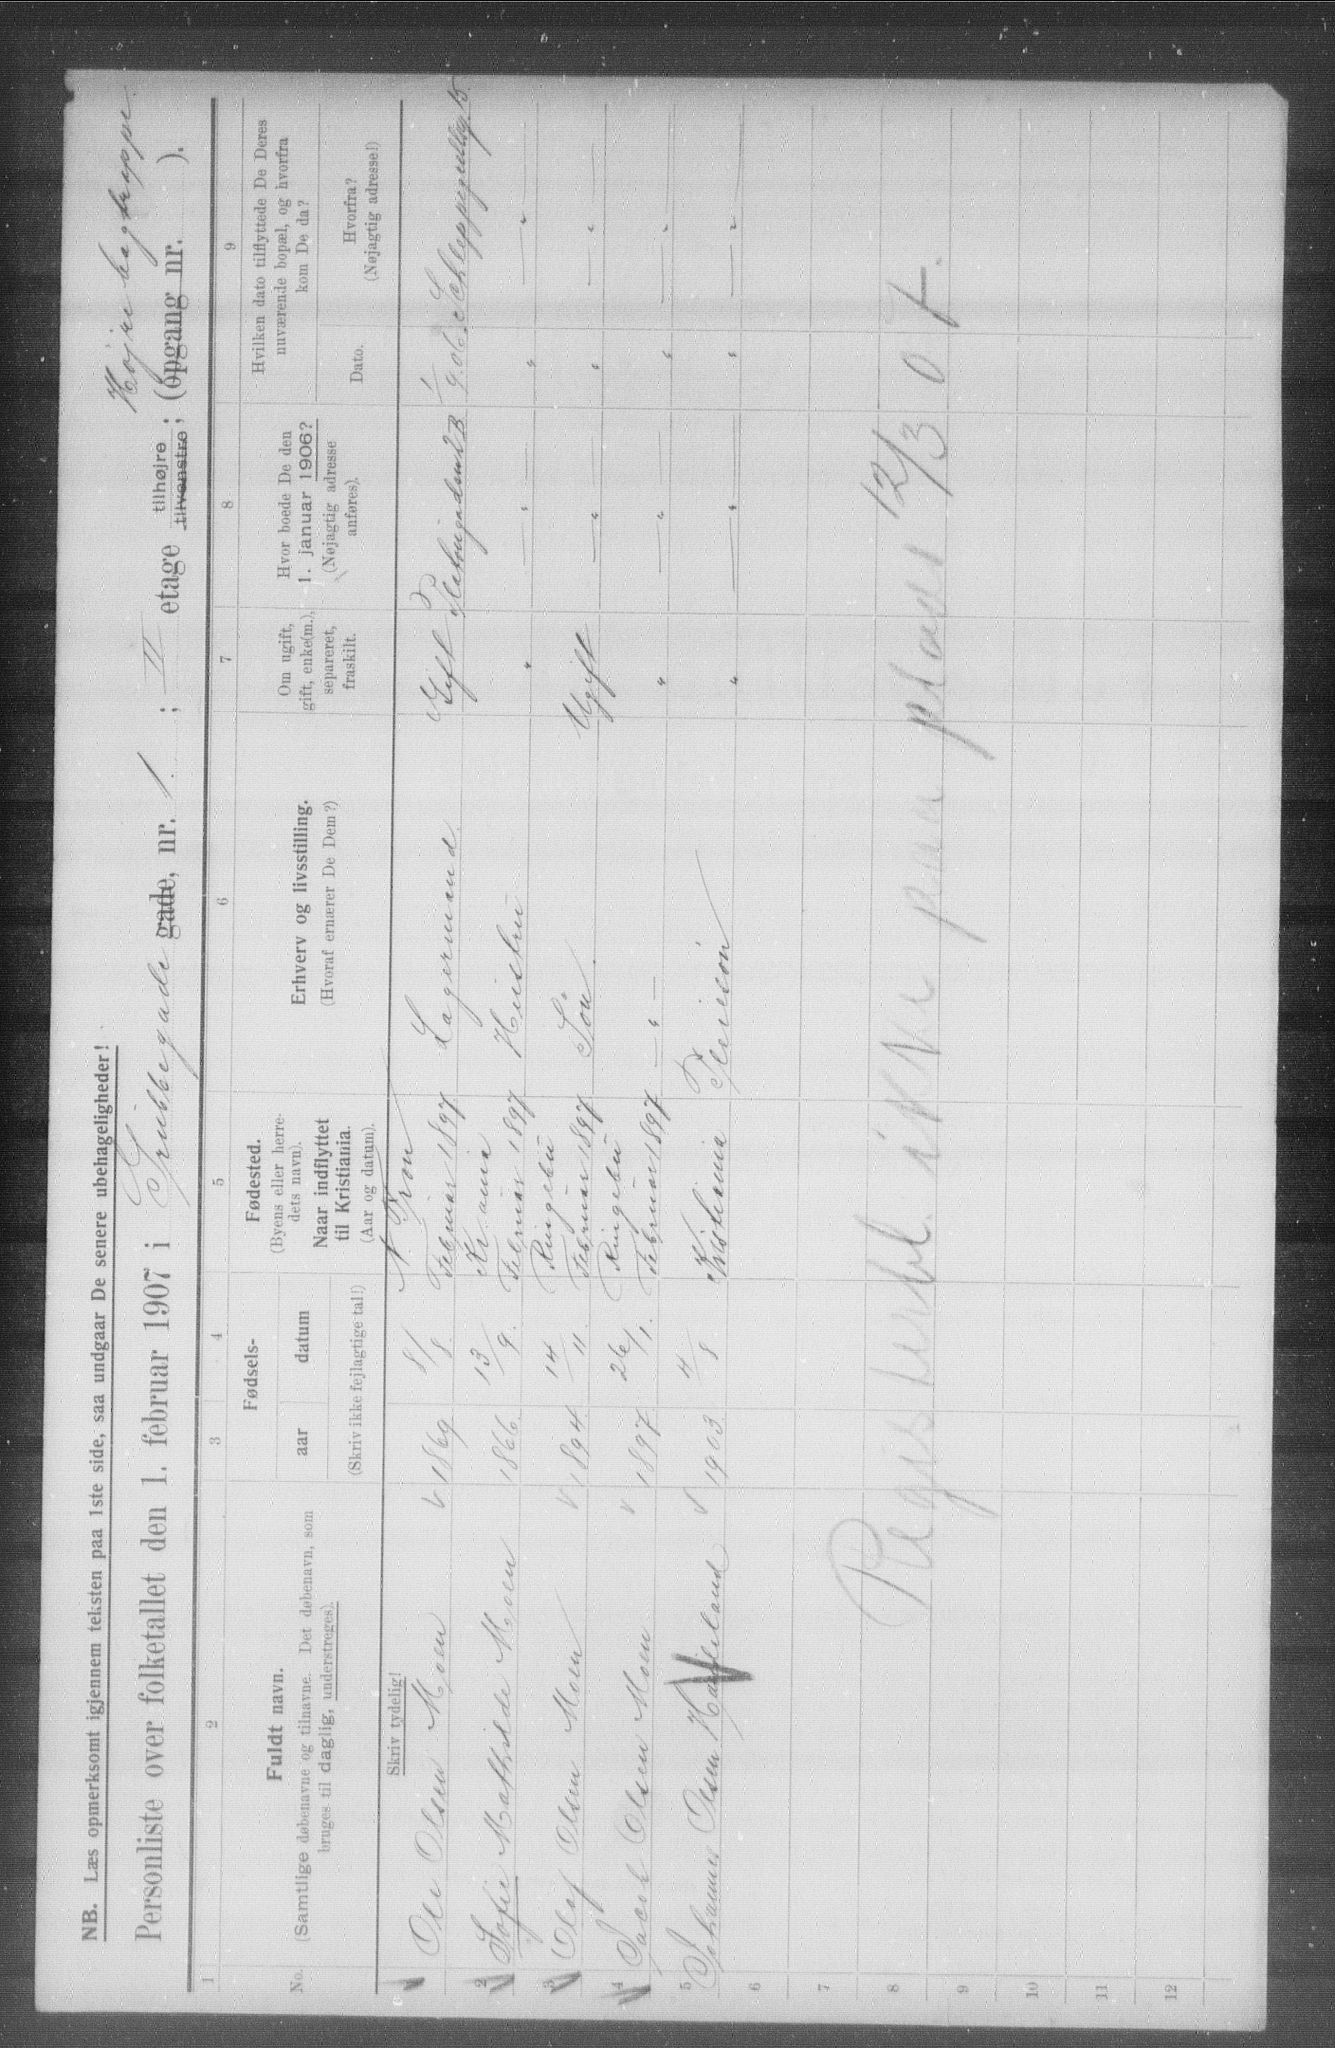 NB. Læs opmerksomt igjennem teksten paa 1ste side, saa undgaar De senere ubehageligheder!
Højre bagtrappe
Personliste over folketallet den 1. februar 1907 i Grubbegade gade, nr. 1 ; II etage tilhøjre tilvenstre; (opgang nr. ).
1 2 3 4 5 6 7 8 9
No.
Fuldt navn.
(Samtlige døbenavne og tilnavne. Det døbenavn, som
bruges til daglig, understreges).
Fødsels-
aar datum
(Skriv ikke fejlagtige tal!)
Fødested.
(Byens eller herre-
dets navn).
Naar indflyttet
til Kristiania.
(Aar og datum).
Erhverv og livsstilling.
(Hvoraf ernærer De Dem?)
Om ugift,
gift, enke(m.),
separeret,
fraskilt.
Hvor boede De den
1. januar 1906?
(Nøjagtig adresse
anføres).
Hvilken dato tilflyttede De Deres
nuværende bopæl, og hvorfra
kom De da?
Dato.
Hvorfra?
(Nøjagtig adresse!)
Skriv tydelig!
Ole Olsen Moen 1869 8/8 N. Fron Februar 1897 Lagermand. Gift
2 Sofie Mathilde Moen 1866. 13/9. Kr.ania Februar 1897 Hustru " — " — " — " —
3 Olaf Olsen Moen 1894 14/11. Ringebu Februar 1897 Søn. Ugift — " — " — " —
4 Jacob Olsen Moen 1897 26/1. Ringebu Februar 1897 — " — " — " — " — " —
5 Johannes Olsen 1903 4/8 Kristiania Pleiesøn " — " — " — " —
6
7
8
9
10
11
12
Plegsberbl. ikke paa plads 12/3 07.